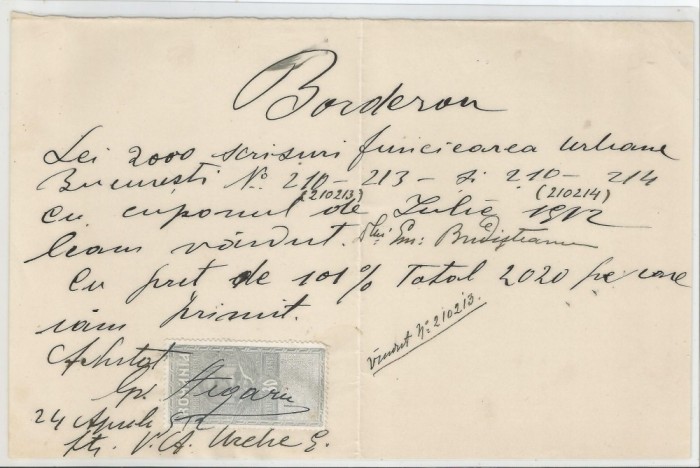 Borderou
Lei 2000 scrisuri funciearea urbane
București No 210-213 - si 210-214
(210213) (210214)
cu cuponul de Iulie 1912
leam vândut. Dlui Em: Budișteanu
Cu pret de 101% Total 2020 pe care
iam primit.
Vîndut No 210213.
Achitat
ROMANIA
24 Aprile
Str. V. A. Ureche